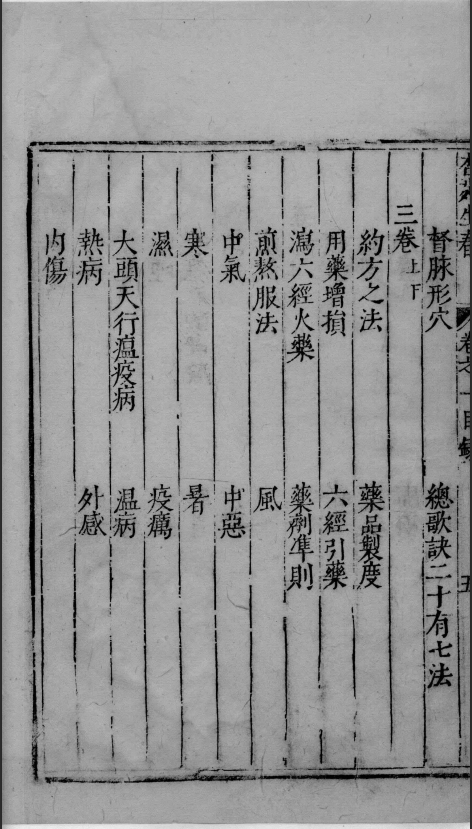 卷之一目錄 五
督脉形穴 總歌訣二十有七法
三卷上下
約方之法 藥品製度
用藥增損 六經引藥
瀉六經火藥 藥劑準則
煎熬服法 風
中氣 中惡
寒 暑
濕 疫癘
大頭天行瘟疫病 温病
熱病 外感
内傷